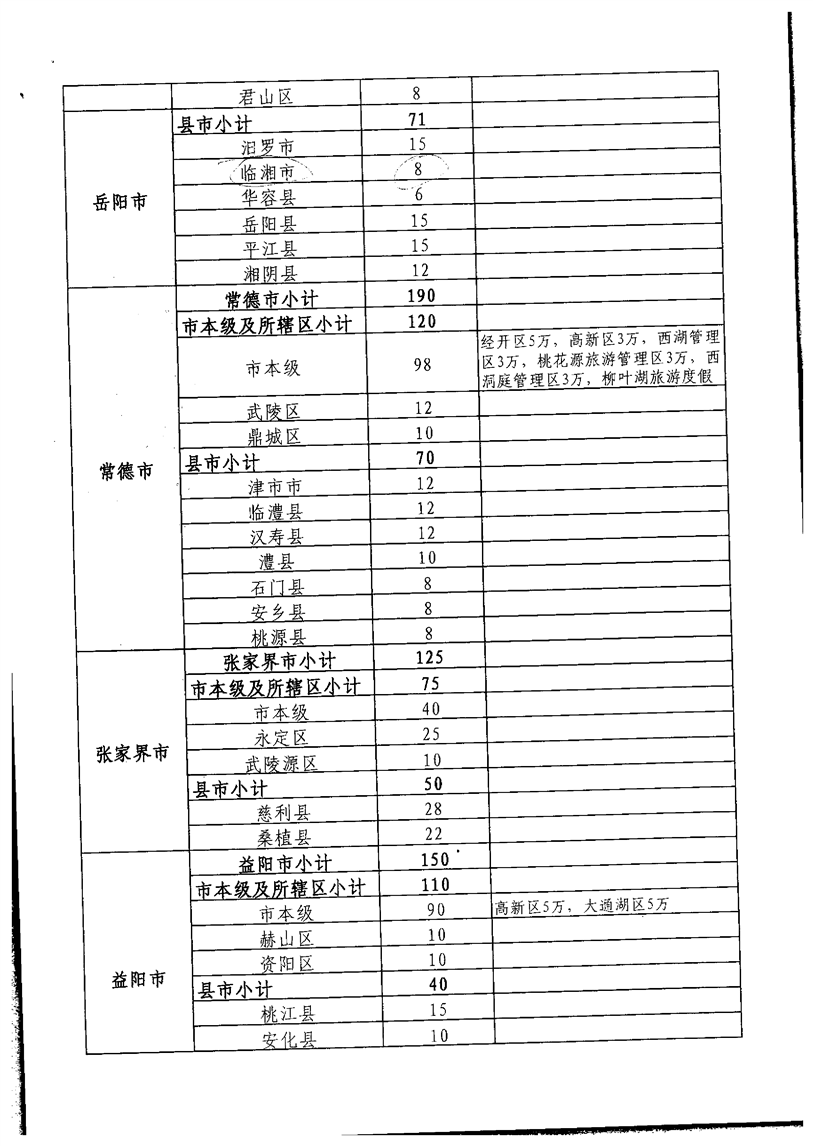 君山区 8
岳阳市
县市小计 71
汨罗市 15
临湘市 8
华容县 6
岳阳县 15
平江县 15
湘阴县 12
常德市
常德市小计 190
市本级及所辖区小计 120
市本级 98
经开区5万，高新区3万，西湖管理
区3万，桃花源旅游管理区3万，西
洞庭管理区3万，柳叶湖旅游度假
武陵区 12
鼎城区 10
县市小计 70
津市市 12
临澧县 12
汉寿县 12
澧县 10
石门县 8
安乡县 8
桃源县 8
张家界市
张家界市小计 125
市本级及所辖区小计 75
市本级 40
永定区 25
武陵源区 10
县市小计 50
慈利县 28
桑植县 22
益阳市
益阳市小计 150
市本级及所辖区小计 110
市本级 90 高新区5万，大通湖区5万
赫山区 10
资阳区 10
县市小计 40
桃江县 15
安化县 10